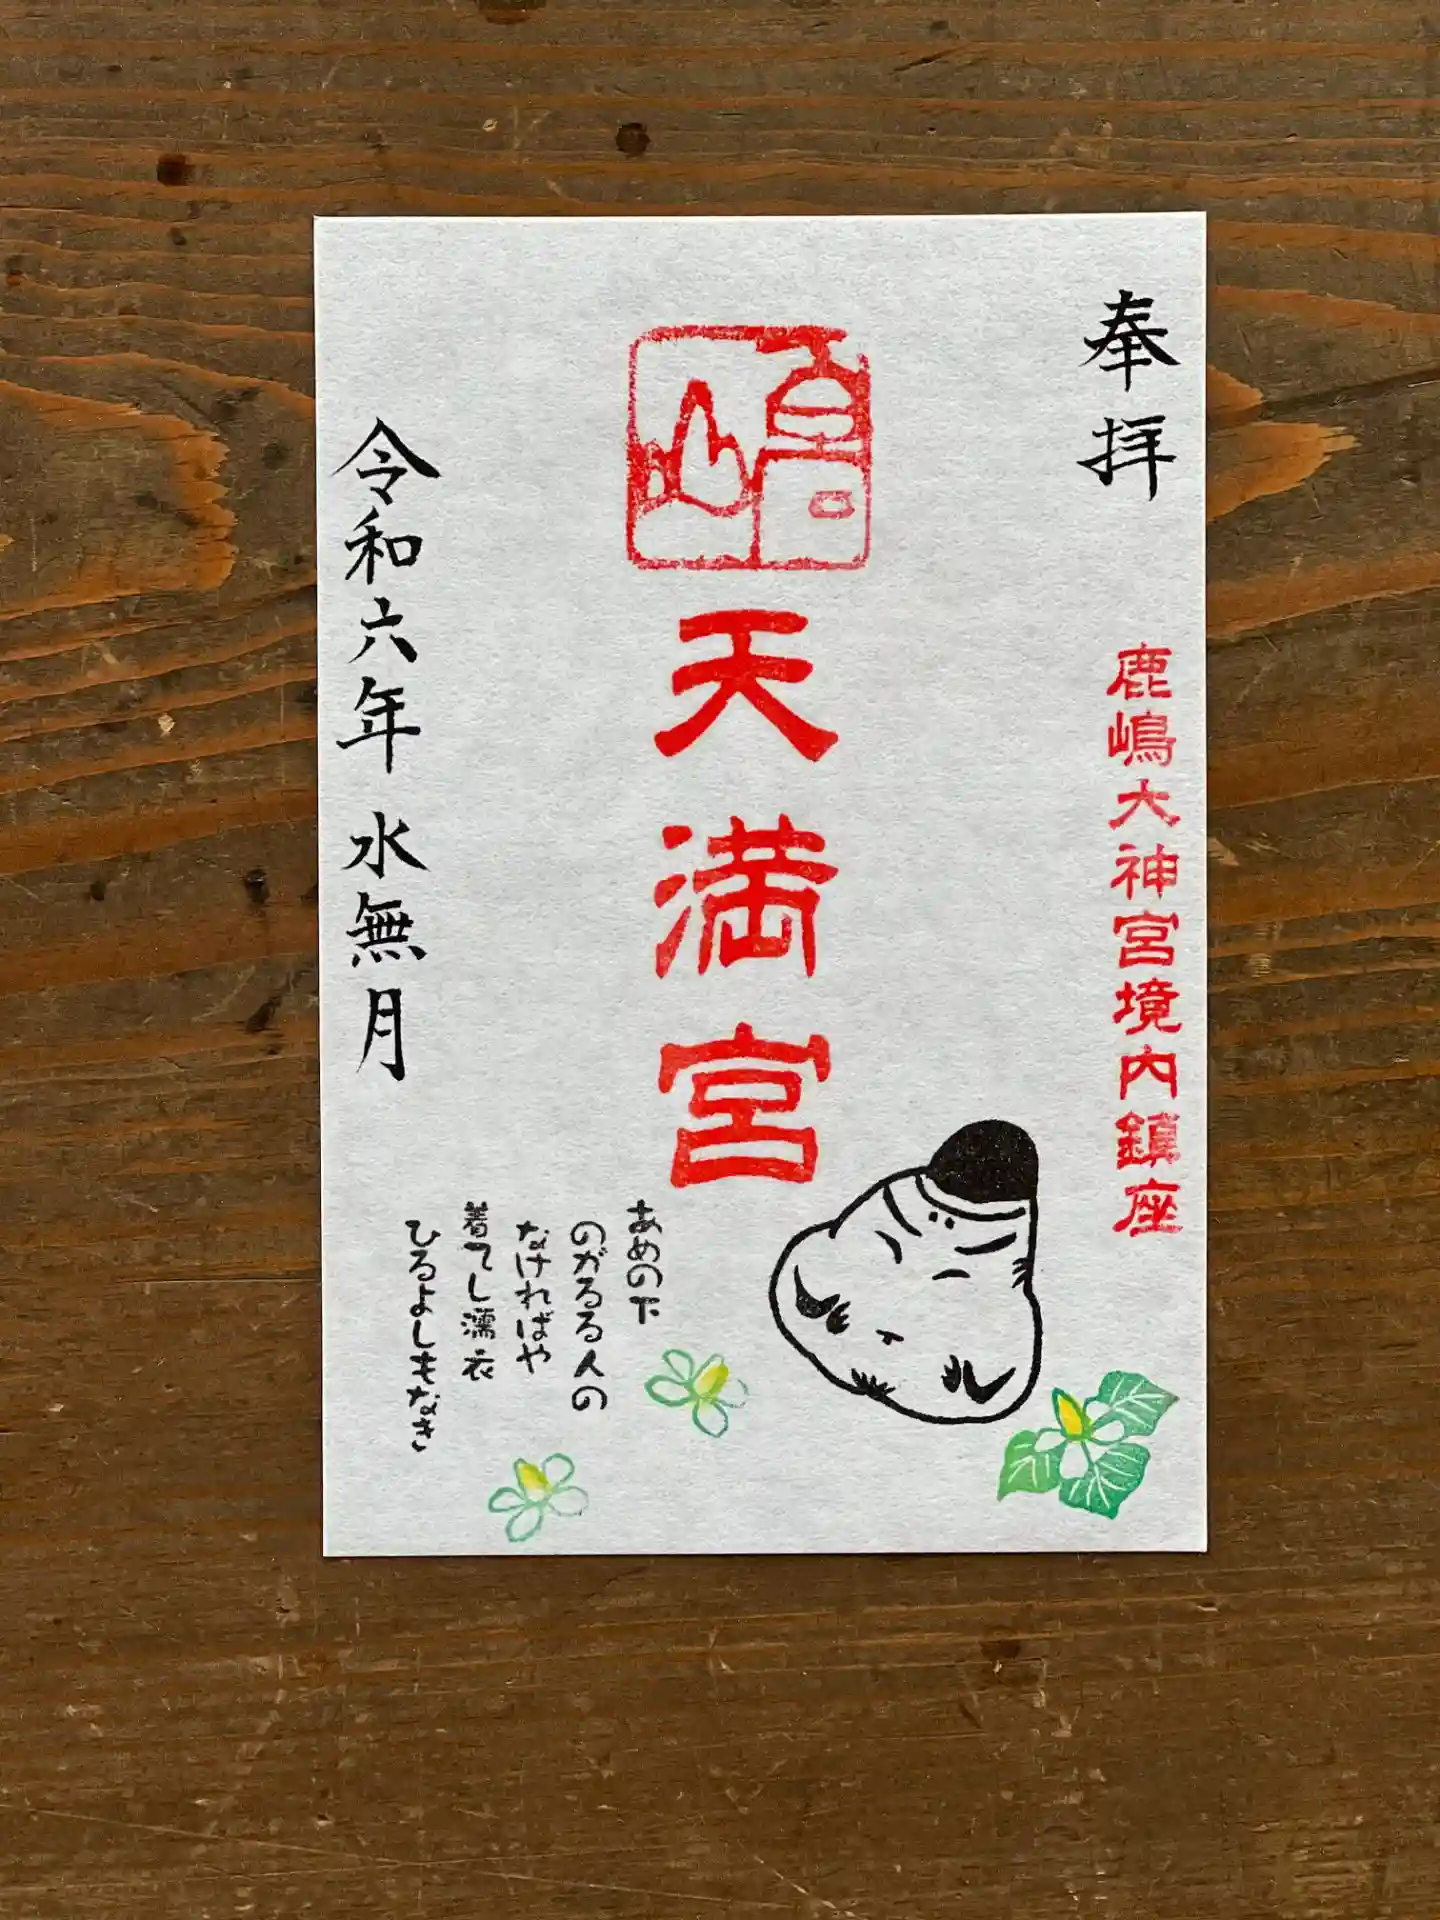 奉拝
鹿嶋大神宮境内鎮座
天満宮
あめの下
のがるる人の
なければや
着てし濡衣
ひるよしもなき
令和六年 水無月